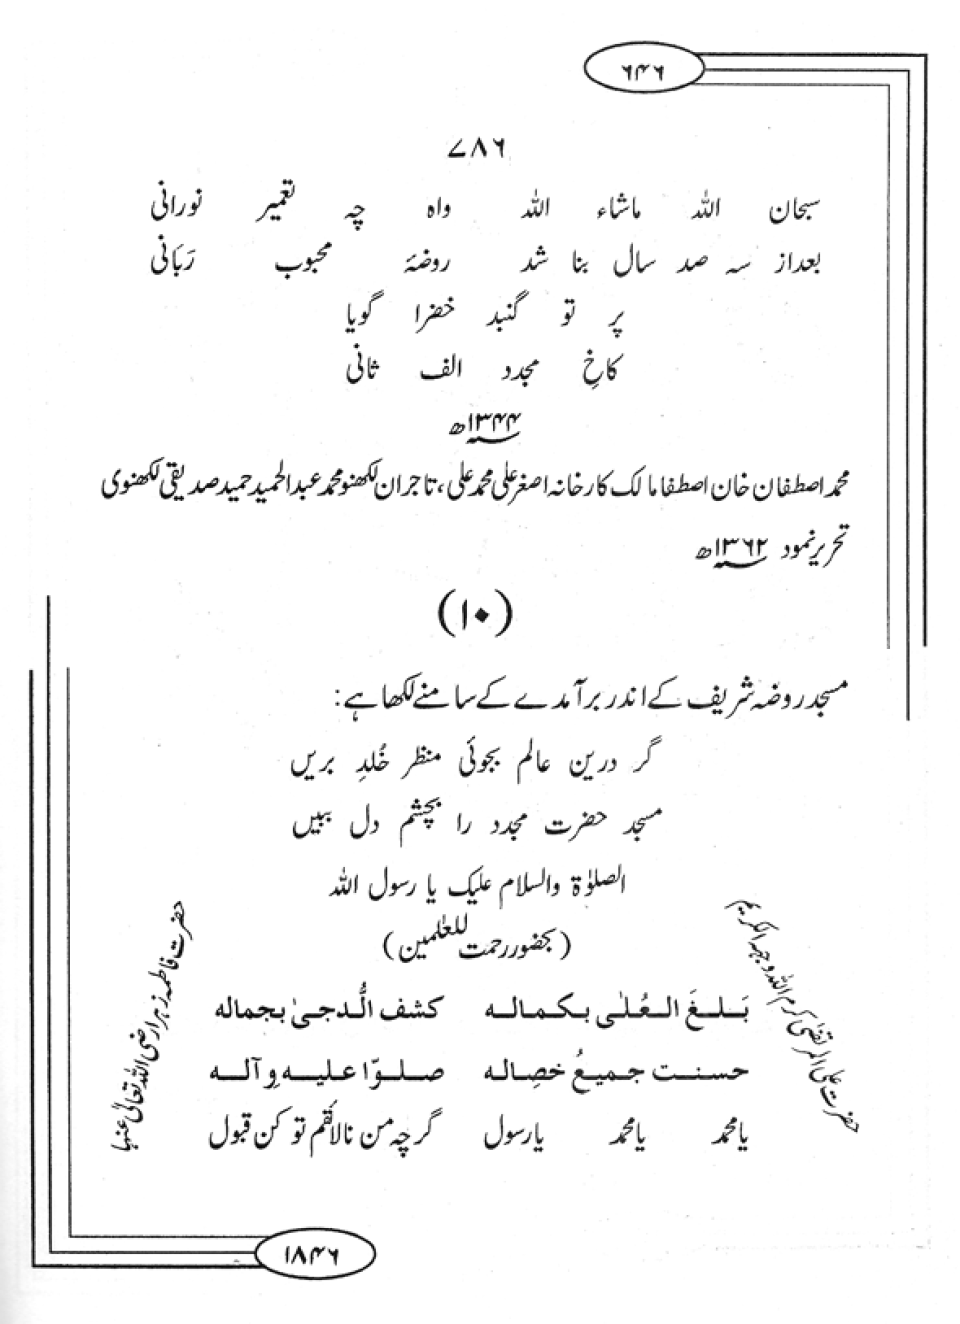 ۶۴۶
۷۸۶
سبحان اللہ ماشاء اللہ واہ چہ تعمیر نورانی
بعداز سہ صد سال بنا شد روضۂ محبوب رَبانی
پر تو گنبد خضرا گویا
کاخِ مجدد الف ثانی
۱۳۴۴ھ
محمد اصطفان خان اصطفا مالک کارخانہ اصغر علی محمد علی، تاجران لکھنو محمد عبدالحمید حمید صدیقی لکھنوی
تحریر نمود ۱۳۶۲ھ
(۱۰)
مسجد روضہ شریف کے اندر برآمدے کے سامنے لکھا ہے:
گر درین عالم بجوئی منظر خُلدِ بریں
مسجد حضرت مجدد را بچشم دل ببیں
الصلوٰۃ والسلام علیک یا رسول اللہ
(بحضور رحمت للعٰلمین)
حضرت علی المرتضٰی کرم اللہ وجہہ الکریم
حضرت فاطمہ زہرا رضی اللہ تعالیٰ عنہا
بَلغَ العُلٰی بکماله کشف الُّدجیٰ بجماله
حسنت جمیعُ خصِاله صلوّا علیه وِآله
یامحمد یامحمد یارسول گرچہ من نالائقم تو کن قبول
۱۸۴۶